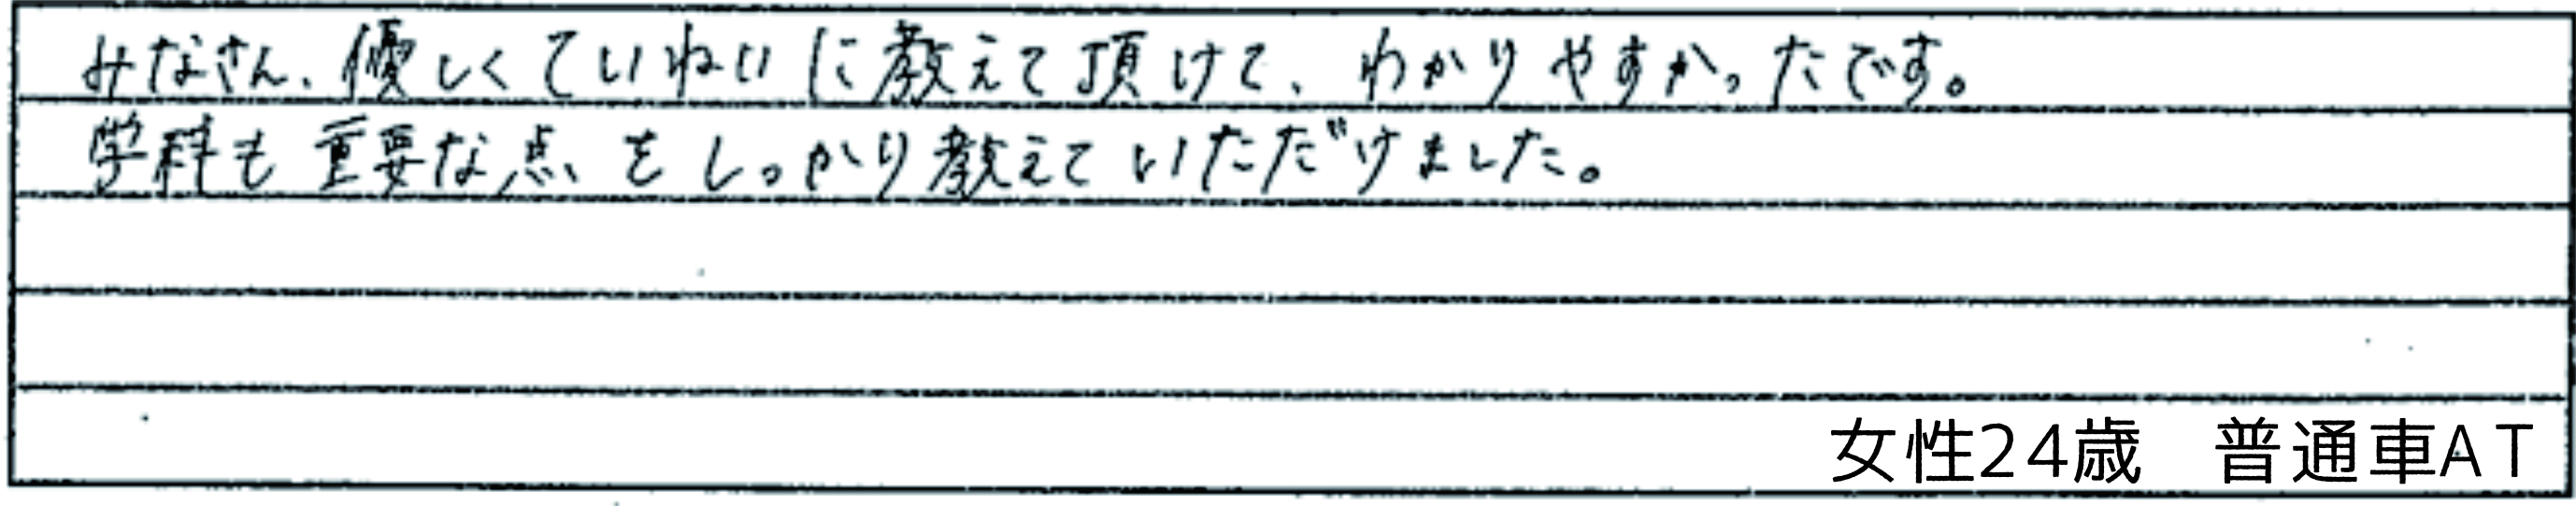 みなさん、優しくていねいに教えて頂けて、わかりやすかったです。
学科も重要な点をしっかり教えていただけました。
女性24歳　普通車AT